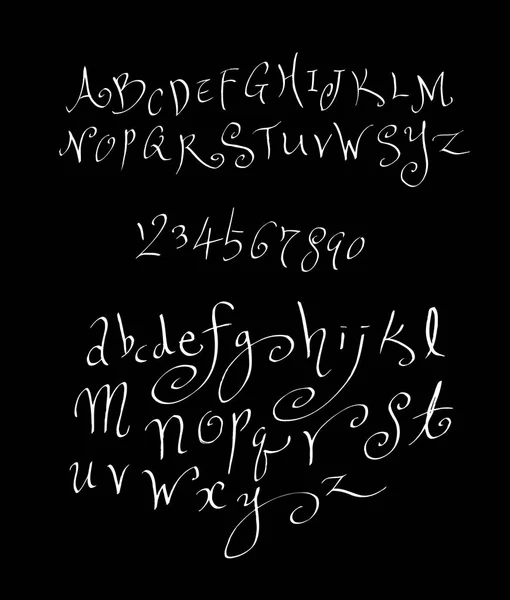 ABCDEFGHIJKLM
NOPQRSTUVWSYZ
1234567890
abcdefghijkl
mnopqrst
uvwxyz